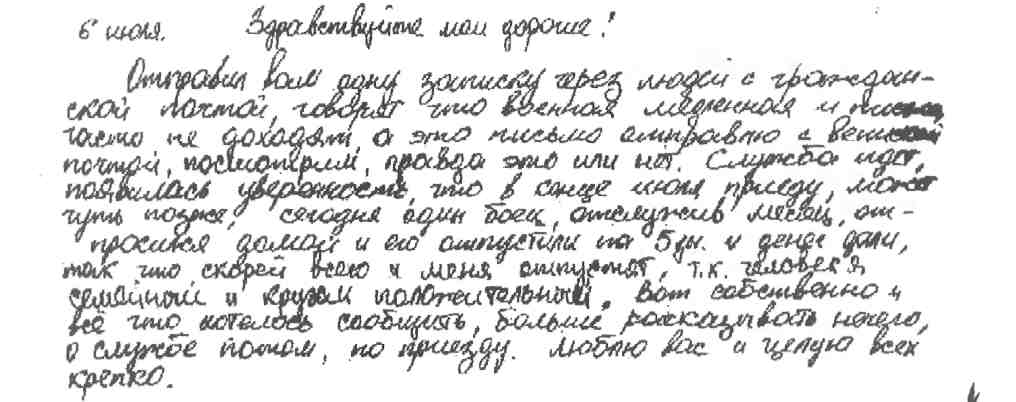 6 июля. Здравствуйте мои дорогие!
Отправил вам одну записку через людей с граждан-
ской почтой, говорят что военная медленная и письма
часто не доходят, а это письмо отправлю с военной
почтой, посмотрим, правда это или нет. Служба идет,
появилась уверенность, что в конце июля приеду, может
чуть позже, сегодня один боец, отслужив месяц, от-
просился домой и его отпустили на 5 дн. и денег дали,
так что скорей всего и меня отпустят, т.к. человек я
семейный и кругом положительный. Вот собственно и
всё что хотелось сообщить, больше рассказывать нечего,
о службе потом, по приезду. Люблю вас и целую всех
крепко.